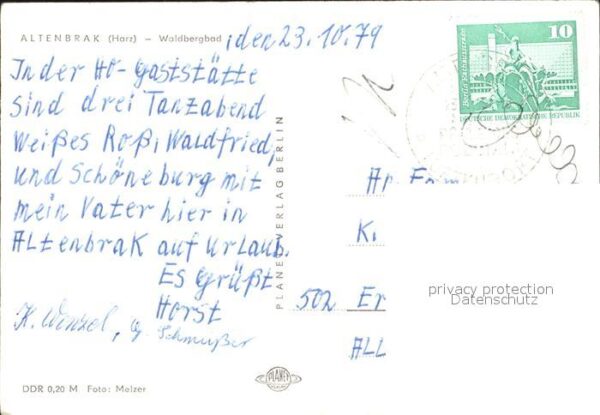 ALTENBRAK (Harz) – Waldbergbad
, den 23.10.79
In der HO-Gaststätte
sind drei Tanzabend
Weißes Roß, Waldfried,
und Schöneburg mit
mein Vater hier in
Altenbrak auf Urlaub.
Es Grüßt
Horst
K. Wenzel,
PLANET-VERLAG BERLIN
10
Berlin Rathausstraße
DEUTSCHE DEMOKRATISCHE REPUBLIK
K.
502 Er
ALL
privacy protection
Datenschutz
PLANET
DDR 0,20 M Foto: Melzer